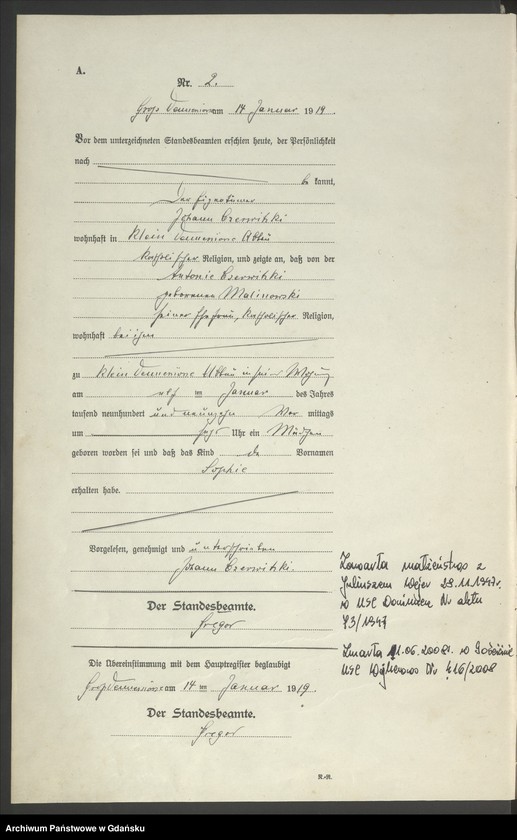 A.
Nr. 2.
am 14 Januar 1919.
Vor dem unterzeichneten Standesbeamten erschien heute, der Persönlichkeit
nach
be kannt,
Der Eigentümer
Johann Czerwitzki
wohnhaft in Klein Abbau
katholischer Religion, und zeigte an, daß von der
Antonie Czerwitzki
geborenen Malinowski
seiner Ehefrau, katholischer Religion,
wohnhaft bei ihm
zu Klein Abbau in seiner Wohnung
am elf ten Januar des Jahres
tausend neunhundert und neunzehn Vor mittags
um Uhr ein Mädchen
geboren worden sei und daß das Kind den Vornamen
Sophie
erhalten habe.
Vorgelesen, genehmigt und unterschrieben
Johann Czerwitzki.
Der Standesbeamte.
Gregor
Die Übereinstimmung mit dem Hauptregister beglaubigt
am 14 ten Januar 1919.
Der Standesbeamte.
Gregor
Zawarła małżeństwo z
Juliuszem 1947r.
w USC Nr aktu
73/1947
Zmarła 11.06.2008r. w
USC Wejherowo Nr 416/2008
R.-R.
Archiwum Państwowe w Gdańsku